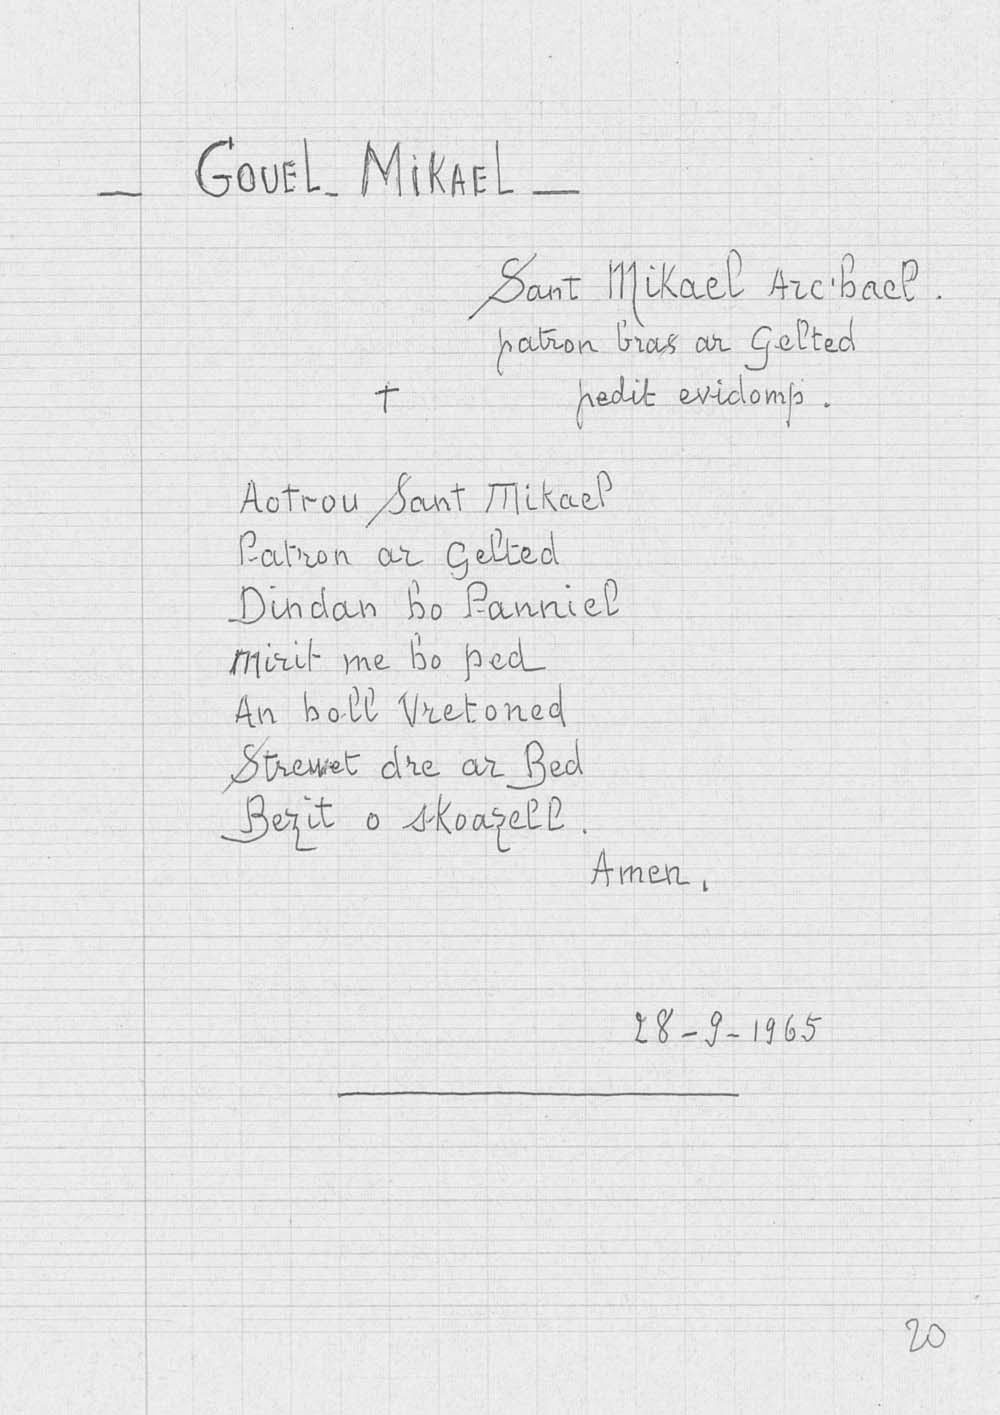 _ GOUEL_ MiKAEL _
Sant Mikael Arc'hael.
patron bras ar Gelted
† pedit evidomp.
Aotrou Sant Mikael
Patron ar Gelted
Dindan ho Panniel
Mirit me ho ped
An holl Vretoned
Strewet dre ar Bed
Bezit o skoazell.
Amen.
28-9-1965
20